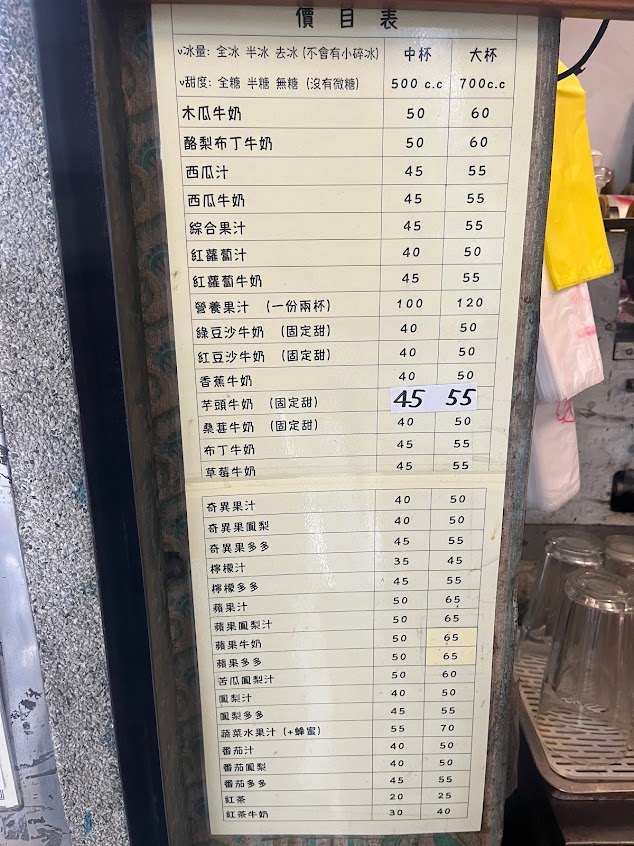 價目表
v冰量: 全冰 半冰 去冰 (不會有小碎冰) 中杯 大杯
v甜度: 全糖 半糖 無糖 (沒有微糖) 500 c.c 700c.c
木瓜牛奶 50 60
酪梨布丁牛奶 50 60
西瓜汁 45 55
西瓜牛奶 45 55
綜合果汁 45 55
紅蘿蔔汁 40 50
紅蘿蔔牛奶 45 55
營養果汁 (一份兩杯) 100 120
綠豆沙牛奶 (固定甜) 40 50
紅豆沙牛奶 (固定甜) 40 50
香蕉牛奶 40 50
芋頭牛奶 (固定甜) 45 55
桑葚牛奶 (固定甜) 40 50
布丁牛奶 45 55
草莓牛奶 45 55
奇異果汁 40 50
奇異果鳳梨 40 50
奇異果多多 45 55
檸檬汁 35 45
檸檬多多 45 55
蘋果汁 50 65
蘋果鳳梨汁 50 65
蘋果牛奶 50 65
蘋果多多 50 65
苦瓜鳳梨汁 50 60
鳳梨汁 40 50
鳳梨多多 45 55
蔬菜水果汁 (+蜂蜜) 55 70
番茄汁 40 50
番茄鳳梨 40 50
番茄多多 45 55
紅茶 20 25
紅茶牛奶 30 40